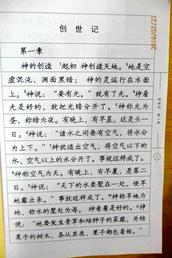 创世记
第一章
神的创造 ¹起初 神创造天地。²地是空
虚混沌，渊面黑暗； 神的灵运行在水面
上。³神说：“要有光。”就有了光。⁴神看
光是好的，就把光暗分开了。⁵神称光为
昼，称暗为夜。有晚上，有早晨，这是头一
日。⁶神说：“诸水之间要有空气，将水分
为上下。”⁷神就造出空气，将空气以下的
水、空气以上的水分开了。事就这样成了。
⁸神称空气为天。有晚上，有早晨，是第二
日。⁹神说：“天下的水要聚在一处，使旱
地露出来。”事就这样成了。¹⁰神称旱地为
地，称水的聚处为海。神看着是好的。¹¹神
说：“地要发生青草和结种子的菜蔬，并结
果子的树木，各从其类，果子都包着核。”